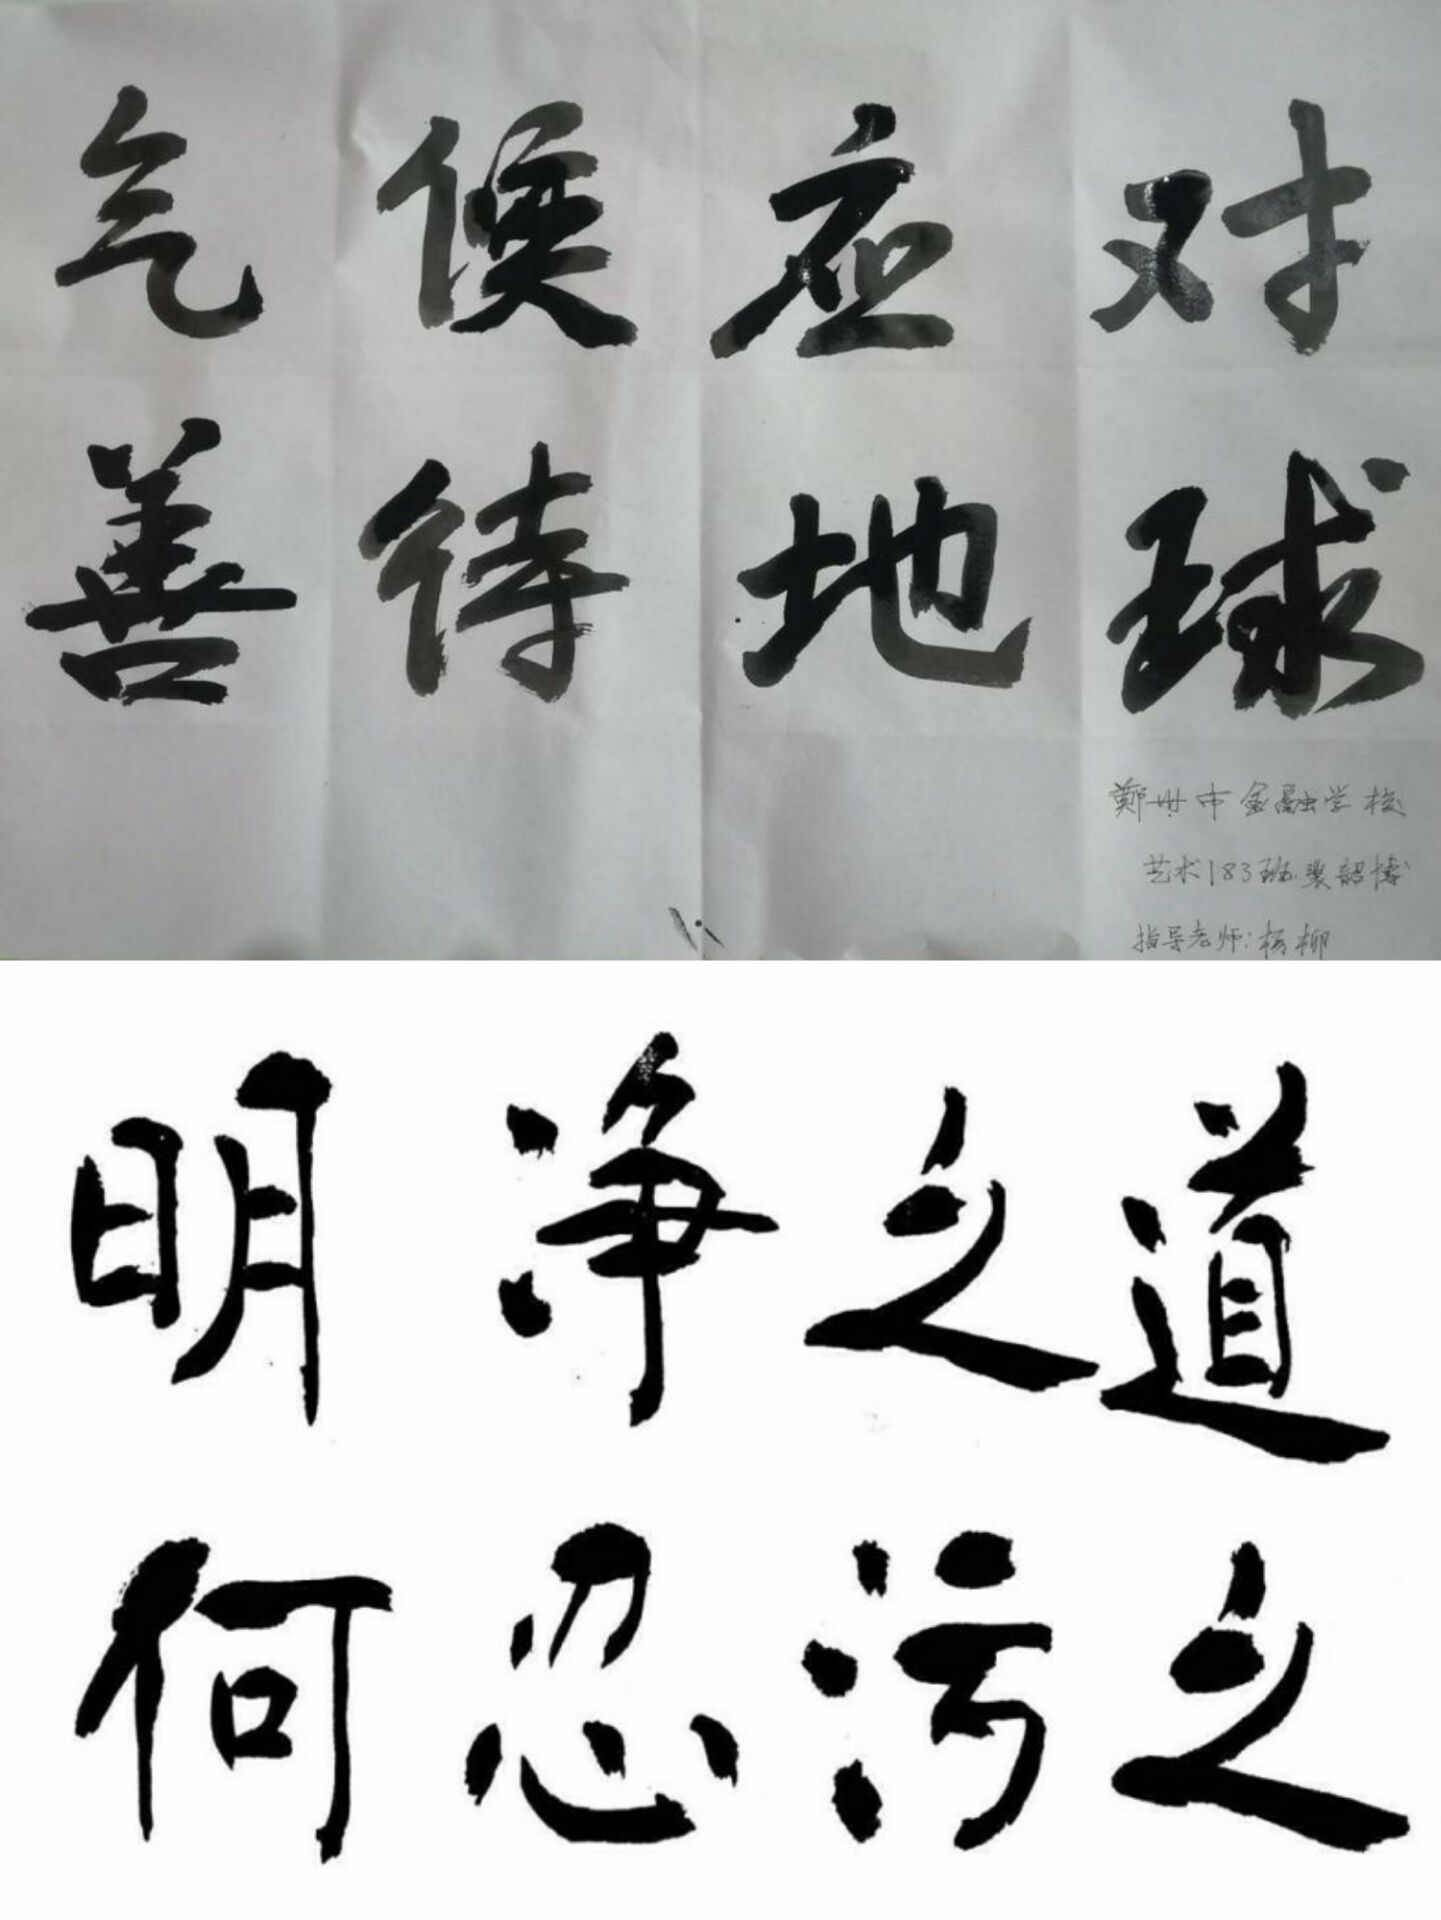 气候应对
善待地球
郑州市金融学校
艺术183班 裴韶博
指导老师:杨柳
明净之道
何忍污之